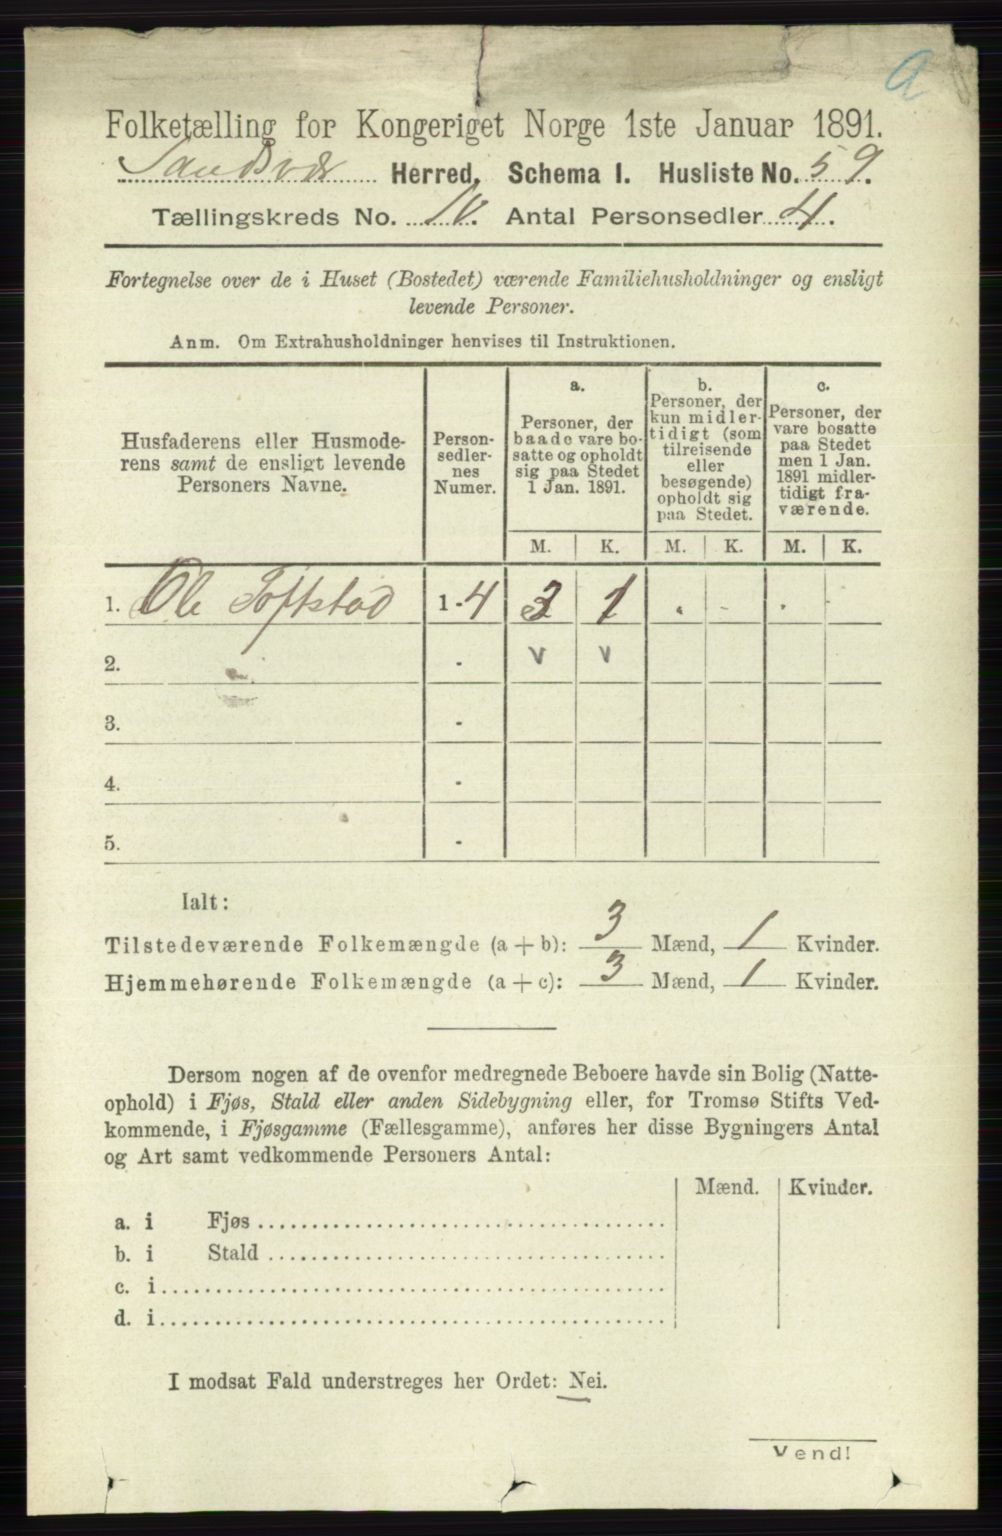 a
Folketælling for Kongeriget Norge 1ste Januar 1891.
Sandsvær Herred. Schema I. Husliste No. 59.
Tællingskreds No. 10. Antal Personsedler 4.
Fortegnelse over de i Huset (Bostedet) værende Familiehusholdninger og ensligt
levende Personer.
Anm. Om Extrahusholdninger henvises til Instruktionen.
Husfaderens eller Husmode-
rens samt de ensligt levende
Personers Navne.
Person-
sedler-
nes
Numer.
a.
Personer, der
baade vare bo-
satte og opholdt
sig paa Stedet
1 Jan. 1891.
b.
Personer, der
kun midler-
tidigt (som
tilreisende
eller
besøgende)
opholdt sig
paa Stedet.
c.
Personer, der
vare bosatte
paa Stedet
men 1 Jan.
1891 midler-
tidigt fra-
værende.
M. K. M. K. M. K.
1. Ole Toftstad 1-4 3 1 . - . -
2. - v v
3. -
4. -
5. -
Ialt:
Tilstedeværende Folkemængde (a + b): 3 Mænd, 1 Kvinder.
Hjemmehørende Folkemængde (a + c): 3 Mænd, 1 Kvinder.
Dersom nogen af de ovenfor medregnede Beboere havde sin Bolig (Natte-
ophold) i Fjøs, Stald eller anden Sidebygning eller, for Tromsø Stifts Ved-
kommende, i Fjøsgamme (Fællesgamme), anføres her disse Bygningers Antal
og Art samt vedkommende Personers Antal:
Mænd. Kvinder.
a. i Fjøs
b. i Stald
c. i
d. i
I modsat Fald understreges her Ordet: Nei.
Vend!